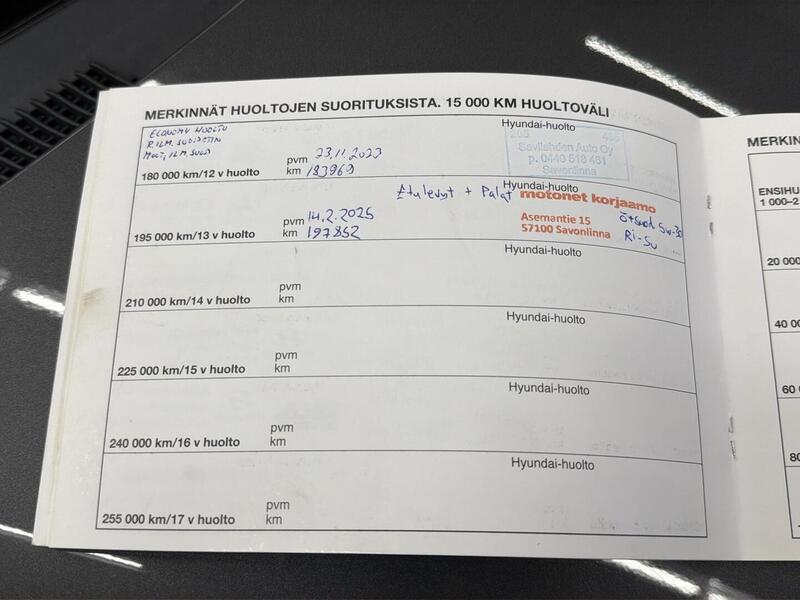 MERKINNÄT HUOLTOJEN SUORITUKSISTA. 15 000 KM HUOLTOVÄLI
ECONOMY HUOLTO
R.ILM. SUODATIN
MOOT, ILM. SUOD
180 000 km/12 v huolto
pvm 23.11.2023
km 183969
Hyundai-huolto
Savilahden Auto Oy
p. 0440 518 461
Savonlinna
195 000 km/13 v huolto
pvm 14.2.2025
km 197852
Etulevyt + Palat
Hyundai-huolto
motonet korjaamo
Asemantie 15
57100 Savonlinna
Ö+suod 5w-30
Ri-Su
210 000 km/14 v huolto
pvm
km
Hyundai-huolto
225 000 km/15 v huolto
pvm
km
Hyundai-huolto
240 000 km/16 v huolto
pvm
km
Hyundai-huolto
255 000 km/17 v huolto
pvm
km
Hyundai-huolto
MERKIN
ENSIHU
1 000–2
20 000
40 00
60
80